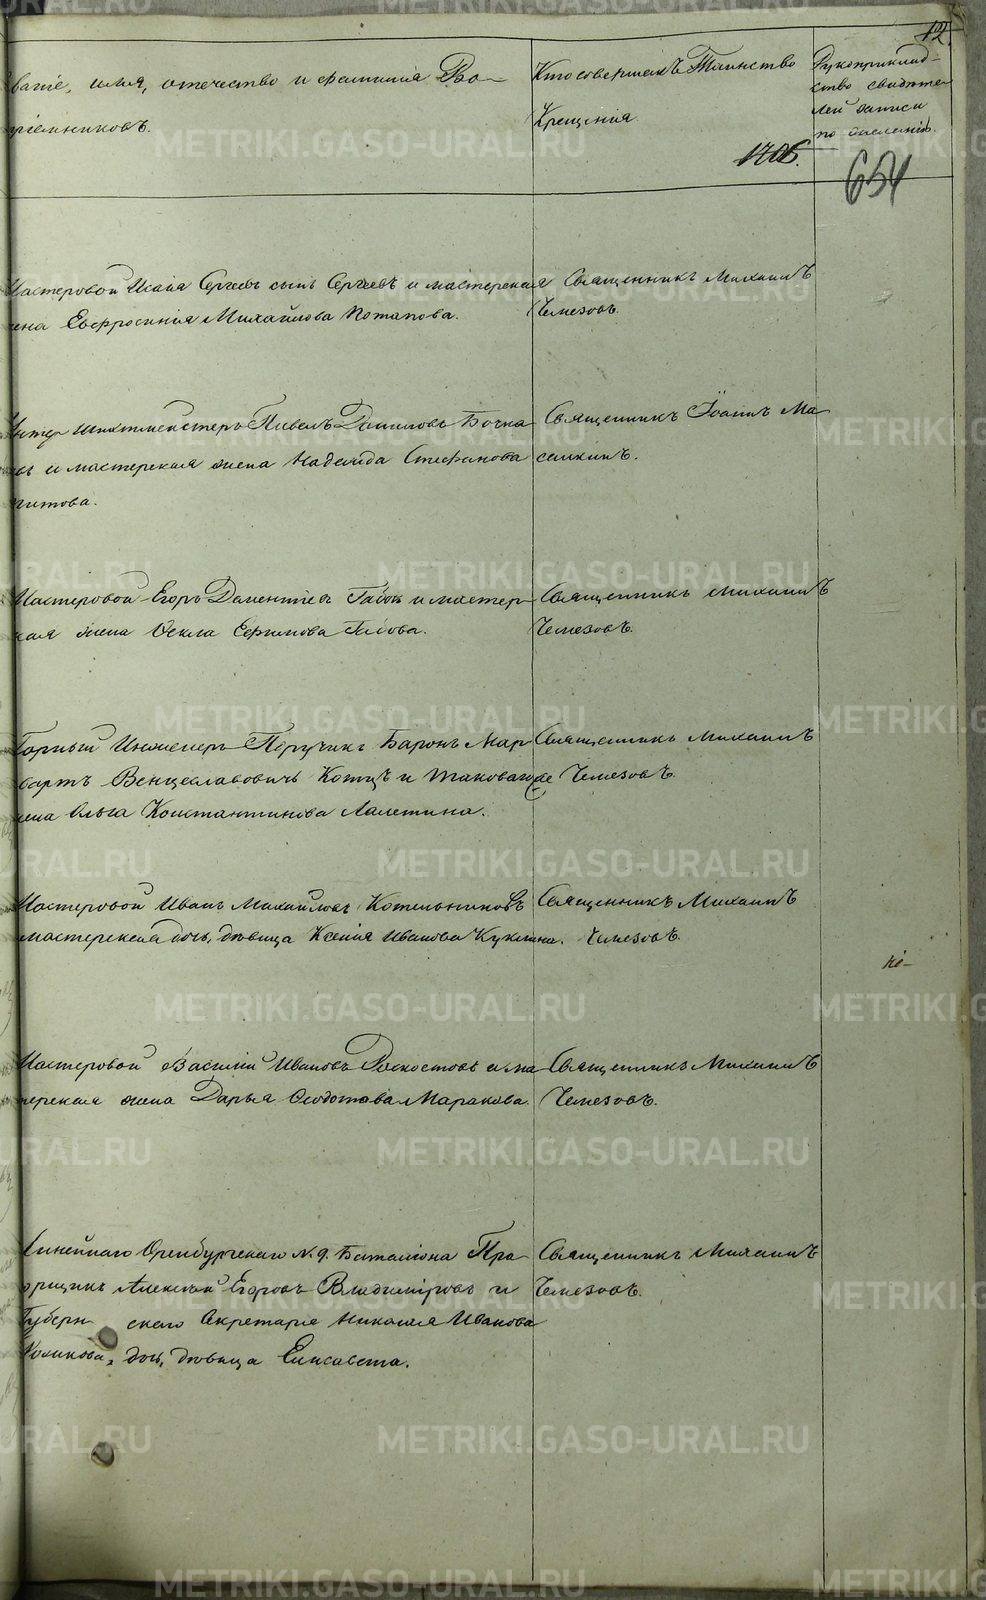 12.
званіе, имя, отечество и фамилия Во-
пріемниковъ.
Кто совершилъ Таинство
Крещения.
Рукоприклад-
ство свидѣте
лей записи
по желанію.
1706.
654
Мастеровой Исаія Сергѣевъ сынъ Сергѣевъ и мастерская
жена Евфросинія Михайлова Потапова.
Священникъ Михаилъ
Чемезовъ.
Унтер Шихтмейстеръ Павелъ Даниловъ Бочка
и мастерская жена Надежда Стефанова
Священникъ Іоаннъ Ма
Мастеровой Егоръ Дементіевъ и мастер-
ская жена Ѳекла Ефимова
Священникъ Михаилъ
Чемезовъ.
Горный Инженеръ Поручикъ Баронъ Мар
Венцеславовичъ Котцъ и таковаго же
жена Ольга Константинова Лалетина.
Священникъ Михаилъ
Чемезовъ
Мастеровой Иванъ Михайловъ Котельниковъ
мастерская дочь, дѣвица Ксенія Иванова Куклина.
Священникъ Михаилъ
Чемезовъ.
Мастеровой Василій Ивановъ и ма
терская жена Дарья Ѳедотова Маракова.
Священникъ Михаилъ
Чемезовъ.
Линейнаго Оренбургскаго N. 9. Баталіона Пра
порщикъ Алексѣй Егоровъ Владиміровъ и
Губерн скаго Секретаря Николая Иванова
дочь, дѣвица Елисавета.
Священникъ Михаилъ
Чемезовъ.
METRIKI.GASO-URAL.RU